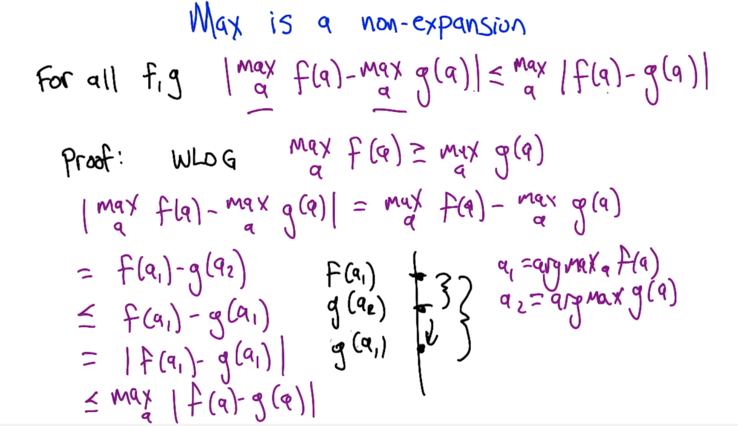 Max is a non-expansion
For all f,g |max_a f(a) - max_a g(a)| ≤ max_a |f(a) - g(a)|
Proof: WLOG max_a f(a) ≥ max_a g(a)
|max_a f(a) - max_a g(a)| = max_a f(a) - max_a g(a)
= f(a₁) - g(a₂)
≤ f(a₁) - g(a₁)
= |f(a₁) - g(a₁)|
≤ max_a |f(a) - g(a)|
f(a₁)
g(a₂)
g(a₁)
a₁ = argmax_a f(a)
a₂ = argmax g(a)